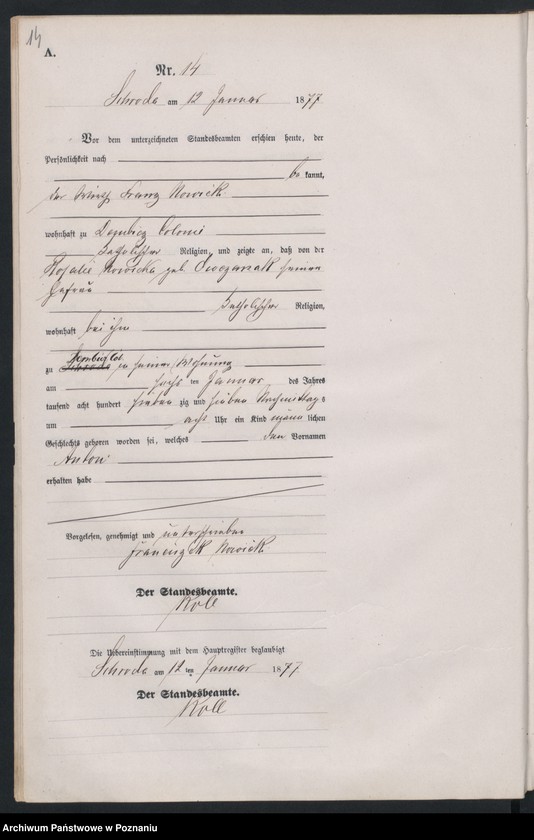 14
A.
Nr. 14
Schroda am 12 Januar 1877
Vor dem unterzeichneten Standesbeamten erschien heute, der
Persönlichkeit nach
be kannt,
der Wirth Franz Nowick
wohnhaft zu Dembicz Colonie
katholischer Religion, und zeigte an, daß von der
Rosalie Nowicka geb. seiner
Ehefrau
katholischer Religion,
wohnhaft bei ihm
zu Dembicz Col. Schroda in seiner Wohnung
am sechs ten Januar des Jahres
tausend acht hundert sieben zig und sieben Nachmittags
um acht Uhr ein Kind männ lichen
Geschlechts geboren worden sei, welches den Vornamen
Anton
erhalten habe
Vorgelesen, genehmigt und unterschrieben
Franciszek Nowick
Der Standesbeamte.
Koll
Die Uebereinstimmung mit dem Hauptregister beglaubigt
Schroda am 12 ten Januar 1877
Der Standesbeamte.
Koll
Archiwum Państwowe w Poznaniu